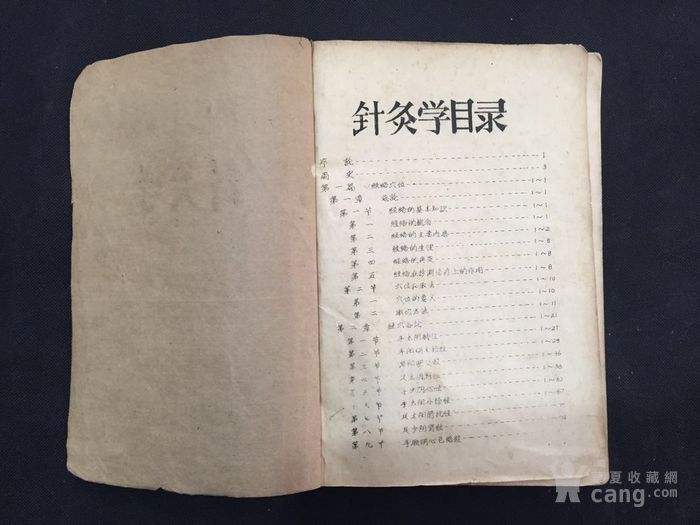 针灸学目录
序 说 1
简 史 3
第一篇 经络穴位 1~1
第一章 总论 1~1
第一节 经络的基本知识 1~1
第一 经络的概念 1~1
第二 经络的主要内容 1~2
第三 经络的生理 1~6
第四 经络的病变 1~8
第五 经络在诊断治疗上的作用 1~8
第二节 穴位和取法 1~10
第一 穴位的意义 1~10
第二 取穴方法 1~11
第二章 经穴各论 1~21
第一节 手太阴肺经 1~21
第二节 手阳明大肠经 1~29
第三节 足阳明胃经 1~36
足太阴脾经 1~38
手少阴心经 1~52
节 手太阳小肠经 1~57
第七节 足太阳膀胱经
第八节 足少阴肾经
第九节 手厥阴心包络经
华夏收藏網
cang.com